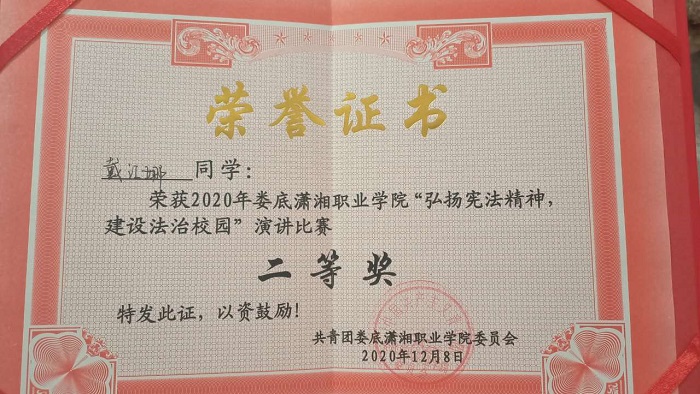 荣誉证书
戴江娜 同学：
荣获2020年娄底潇湘职业学院“弘扬宪法精神，
建设法治校园”演讲比赛
二等奖
特发此证，以资鼓励！
共青团娄底潇湘职业学院委员会
2020年12月8日